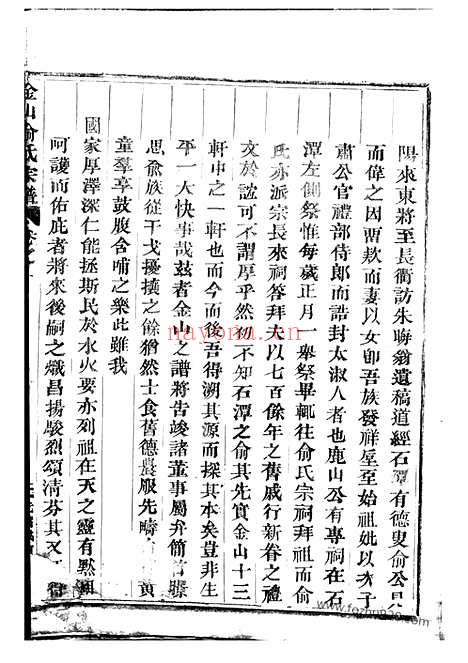 陽來東將至長衢訪朱聯翁遺稿道經石潭有德叟俞公見
而偉之因賈欵而妻以女卽吾族發祥星至始祖妣以次子
肅公官禮部侍郎而誥封太淑人者也鹿山公有專祠在石
潭左側祭惟每歲正月一舉祭畢輒往俞氏宗祠拜祖而俞
氏亦派宗長來祠答拜夫以七百餘年之舊戚行新春之禮
文於誼可不謂厚乎然初不知石潭之俞其先實金山十三
軒中之一軒也而今而後吾得溯其源而探其本矣豈非生
平一大快事哉茲者金山之譜將告竣諸董事屬弁簡首滕
思俞族從干戈擾攘之餘猶然士食舊德農服先疇 黃
童羣享鼓腹含哺之樂此雖我
國家厚澤深仁能拯斯民於水火要亦列祖在天之靈有默相
呵護而佑庇者將來後嗣之熾昌揚駿烈頌清芬其又
金山俞氏宗譜
nayona.cn
www.fozhuan0.com